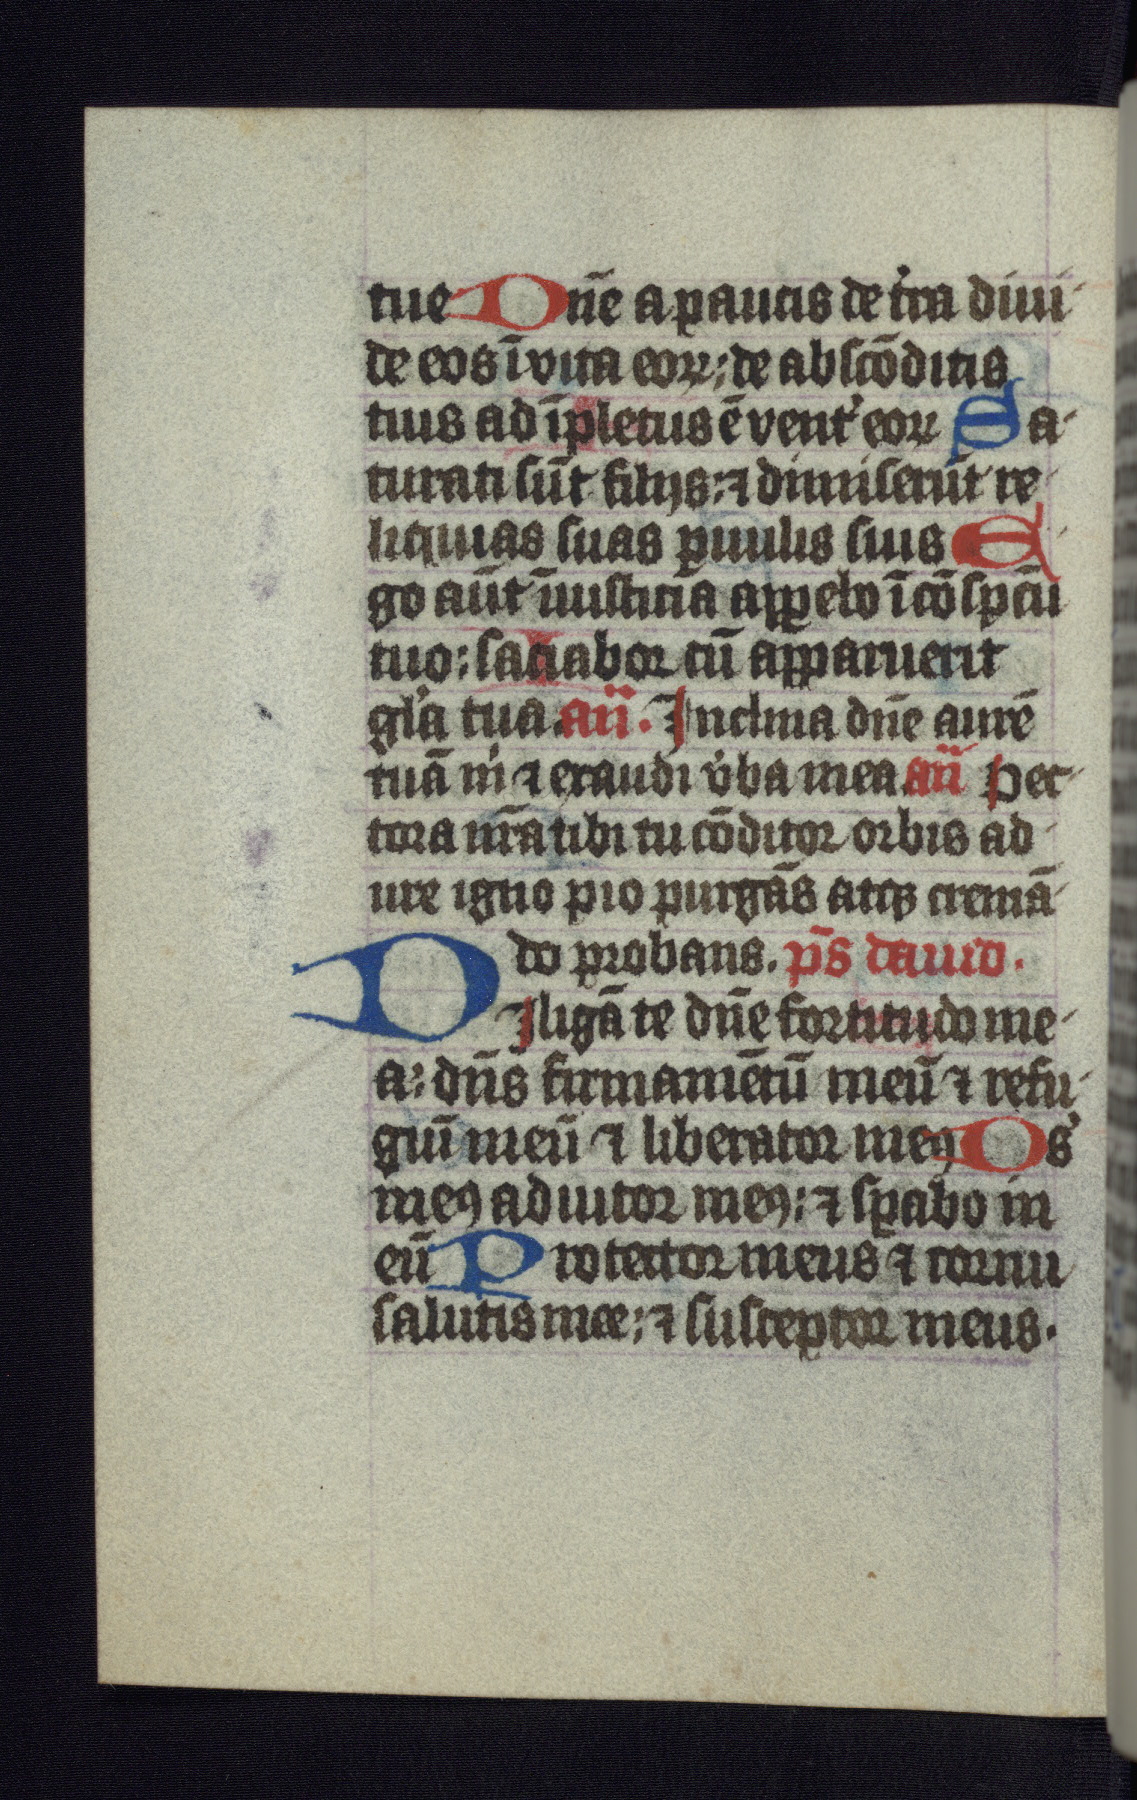 tue Dn̄e a paucis de t'ra diui
de eos ī vita eoꝝ: de abscōditis
tuis ad īpletus ē vent' eoꝝ Sa
turati sūt filijs: ⁊ dimiserūt re
liquias suas ꝑuulis suis E
go aūt ī iusticia appeͣbo ī cōspcū
tuo: saciabor cū apparuerit
gl'a tua. an̄. Inclina dn̄e aurē
tuā m' ⁊ exaudi v'ba mea. an̄ Pec
tora nr̄a tibi tu cōditor orbis ad
ure igne pio purgās atqꝫ cremā
do probans. pō dauid.
Diligā te dn̄e fortitudo me
a: dn̄s firmamētū meū ⁊ refu
giū meū ⁊ liberator meꝰ Ds'
meꝰ adiutor meꝰ: ⁊ sꝑabo in
eū Protector meus ⁊ cornu
salutis mee: ⁊ susceptor meus.